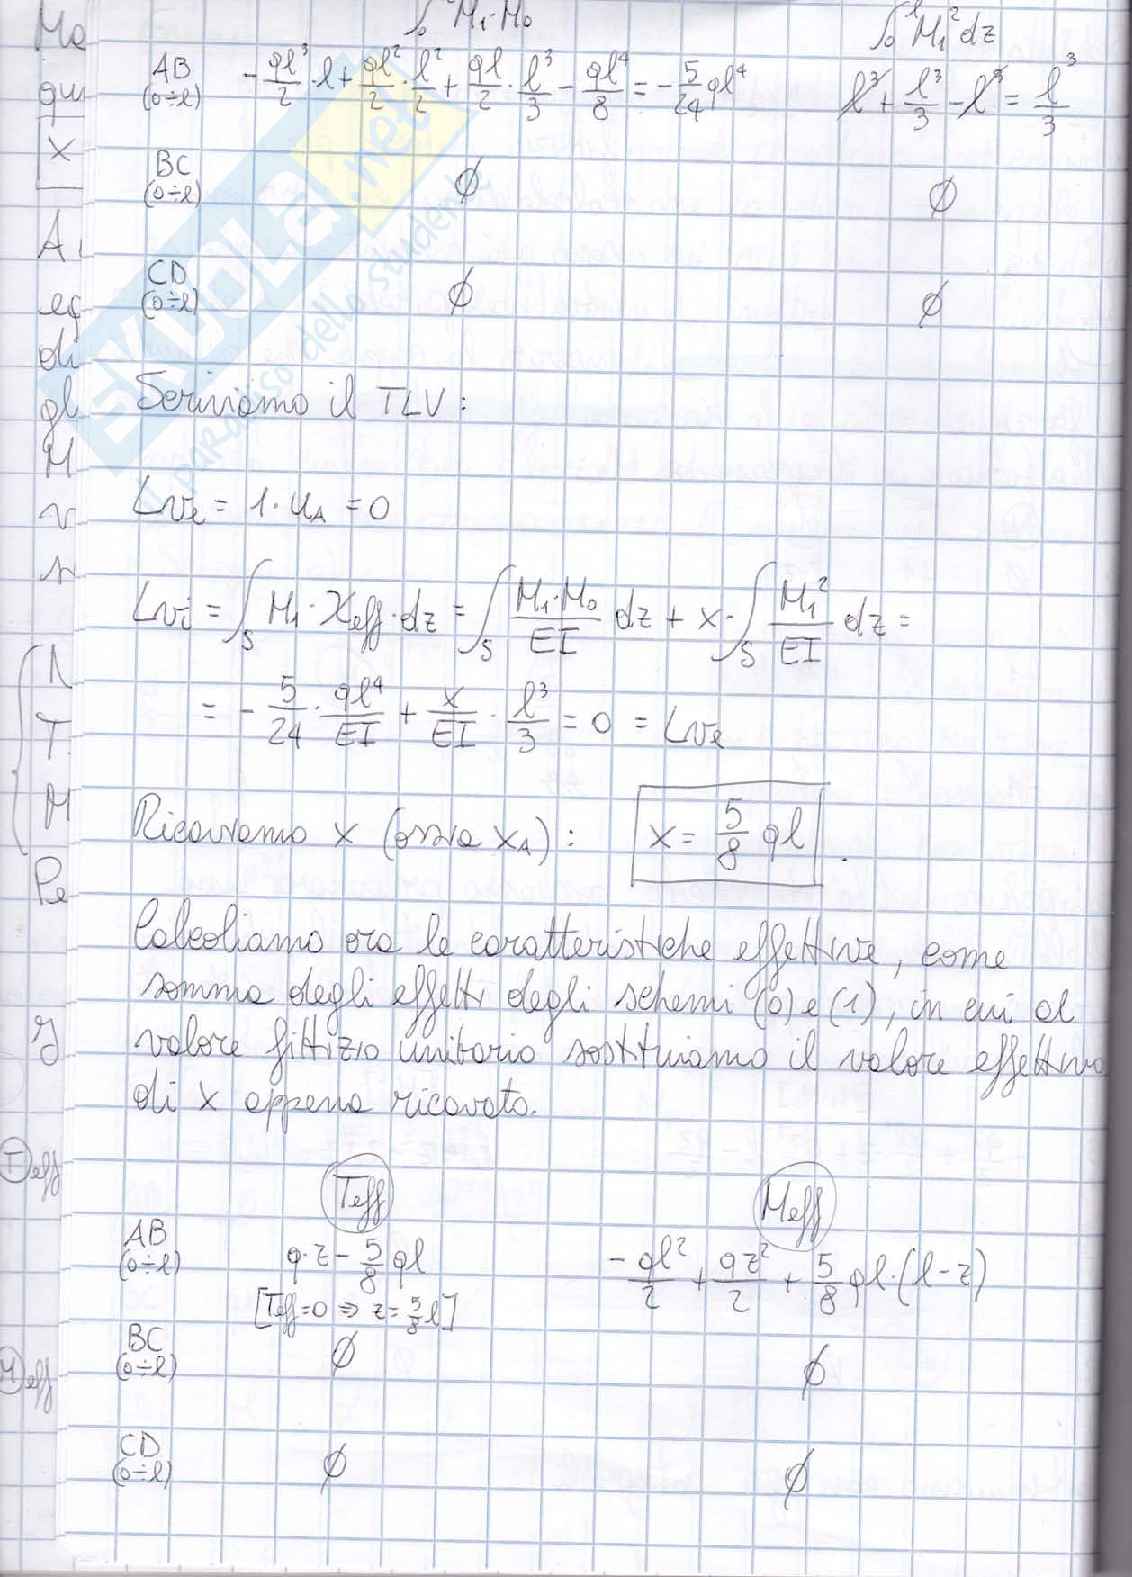 ∫₀ˡ M₁·M₀ ∫₀ˡ M₁² dz
AB (0÷l) -ql³/2·l + ql²/2·l²/2 + ql/2·l³/3 - ql⁴/8 = -5/24 ql⁴ l³ + l³/3 - l³ = l³/3
BC (0÷l) ∅ ∅
CD (0÷l) ∅ ∅
Scriviamo il TLV:
Lve = 1·uA = 0
Lvi = ∫s M₁·χeff·dz = ∫s M₁·M₀/EI dz + x·∫s M₁²/EI dz =
= -5/24·ql⁴/EI + x/EI·l³/3 = 0 = Lve
Ricaviamo x (ossia xA): x = 5/8 ql.
Calcoliamo ora le caratteristiche effettive, come
somma degli effetti degli schemi (0) e (1), in cui al
valore fittizio unitario sostituiamo il valore effettivo
di x appena ricavato.
Teff Meff
AB (0÷l) q·z - 5/8 ql -ql²/2 + qz²/2 + 5/8 ql·(l-z)
[Teff=0 ⇒ z=5/8 l]
BC (0÷l) ∅ ∅
CD (0÷l) ∅ ∅
SKUOLA.net
il paradiso dello studente
Mo
qu
x
A
eq
di
gl
M
v
r
N
T
M
Pe
T eff
M eff